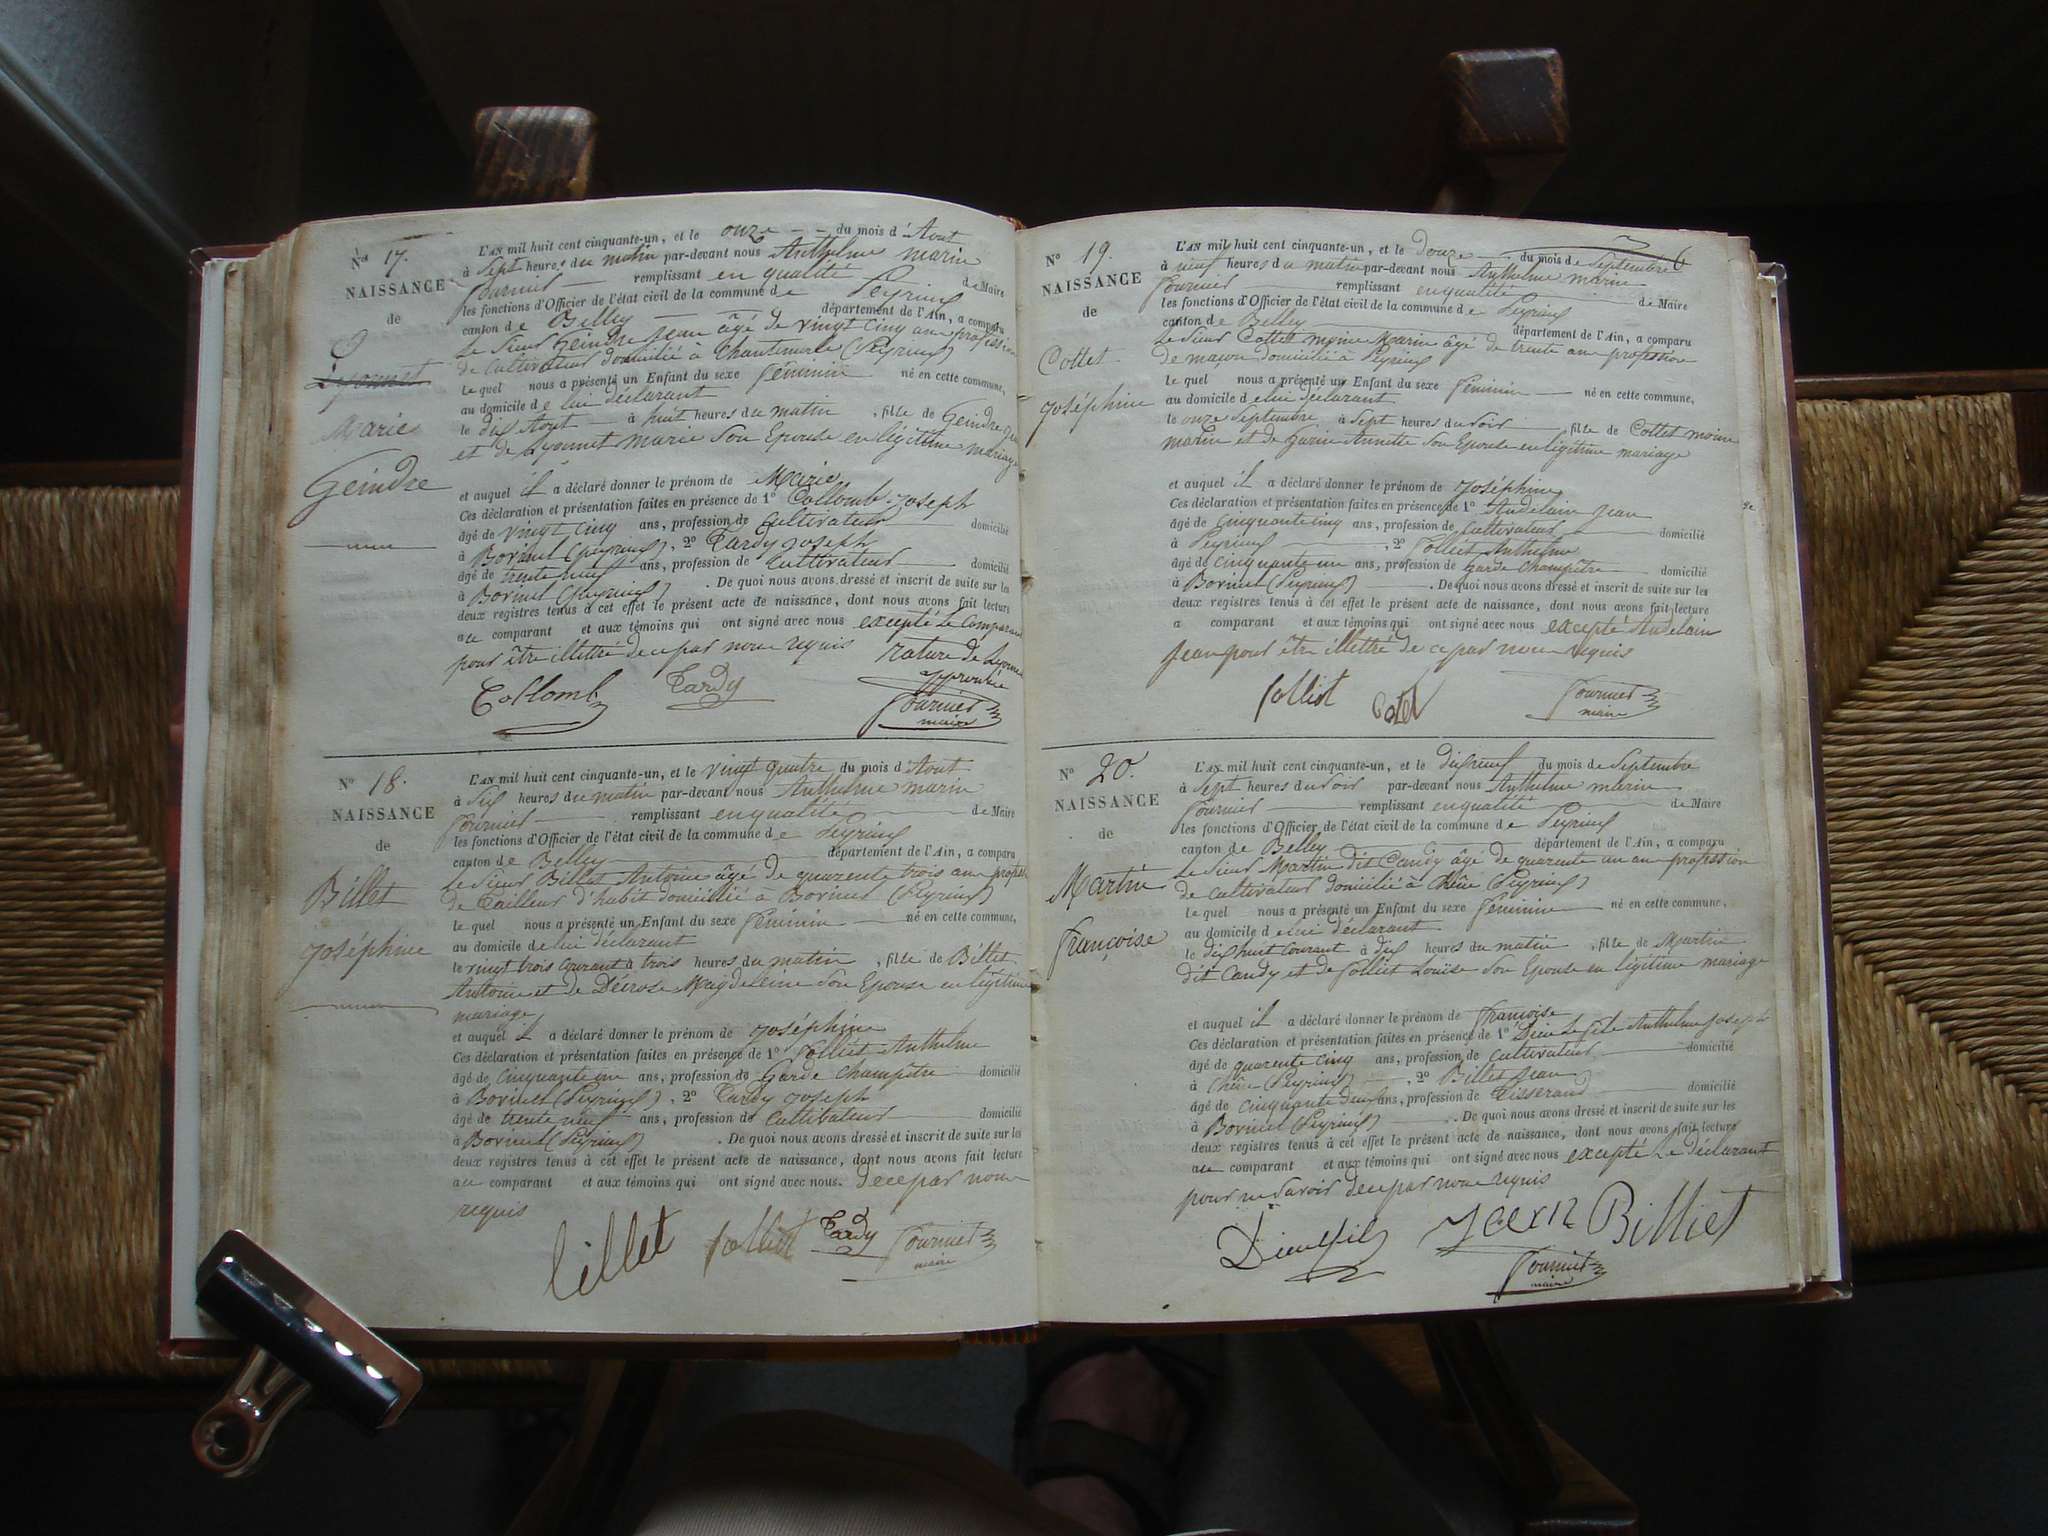 Nº 17.
NAISSANCE
de
Lyonnet
Marie
Geindre
L'AN mil huit cent cinquante-un, et le onze du mois d'Aout
à Sept heures du matin par-devant nous Anthelme marin
Fournier remplissant en qualité de Maire
les fonctions d'Officier de l'état civil de la commune de Peyrieu
canton de Belley département de l'Ain, a comparu
Le Sieur Geindre Jean âgé de vingt cinq ans profession
de Cultivateur domicilié à Chantemerle (Peyrieu)
le quel nous a présenté un Enfant du sexe Féminin né en cette commune,
au domicile de lui déclarant
le dix Aout à huit heures du matin, fille de Geindre
et de Lyonnet marie Son Epouse en légitime mariage
et auquel il a déclaré donner le prénom de Marie
Ces déclaration et présentation faites en présence de 1º Collomb Joseph
âgé de vingt cinq ans, profession de Cultivateur domicilié
à Borinet (peyrieu), 2º Tardy Joseph
âgé de trente neuf ans, profession de Cultivateur domicilié
à Borinet (Peyrieu). De quoi nous avons dressé et inscrit de suite sur les
deux registres tenus à cet effet le présent acte de naissance, dont nous avons fait lecture
au comparant et aux témoins qui ont signé avec nous excepté Le Comparant
pour être illettré de ce par nous requis Rature de Lyonnet
approuvée
Collomb Tardy Fournier
maire
Nº 18.
NAISSANCE
de
Billet
Joséphine
L'AN mil huit cent cinquante-un, et le vingt quatre du mois d'Aout
à dix heures du matin par-devant nous Anthelme marin
Fournier remplissant en qualité de Maire
les fonctions d'Officier de l'état civil de la commune de Peyrieu
canton de Belley département de l'Ain, a comparu
Le Sieur Billet Antoine âgé de quarente trois ans profession
de Tailleur d'habit domicilié à Borinet (Peyrieu)
le quel nous a présenté un Enfant du sexe Féminin né en cette commune,
au domicile de lui déclarant
le vingt trois courant à trois heures du matin, fille de Billet
Antoine et de Décrose Magdeleine Son Epouse en légitime
mariage
et auquel il a déclaré donner le prénom de Joséphine
Ces déclaration et présentation faites en présence de 1º Folliet Anthelme
âgé de cinquante un ans, profession de Garde champêtre domicilié
à Borinet (Peyrieu), 2º Tardy Joseph
âgé de trente neuf ans, profession de Cultivateur domicilié
à Borinet (Peyrieu). De quoi nous avons dressé et inscrit de suite sur les
deux registres tenus à cet effet le présent acte de naissance, dont nous avons fait lecture
au comparant et aux témoins qui ont signé avec nous. de ce par nous
requis
billet folliet Tardy Fournier
maire
6
Nº 19.
NAISSANCE
de
Cottet
Joséphine
L'AN mil huit cent cinquante-un, et le douze du mois de Septembre
à neuf heures du matin par-devant nous Anthelme marin
Fournier remplissant en qualité de Maire
les fonctions d'Officier de l'état civil de la commune de Peyrieu
canton de Belley département de l'Ain, a comparu
Le Sieur Cottet moine Marin âgé de trente ans profession
de maçon domicilié à Peyrieu
le quel nous a présenté un Enfant du sexe Féminin né en cette commune,
au domicile de lui déclarant
le onze Septembre à Sept heures du soir, fille de Cottet moine
marin et de Garin Annette Son Epouse en légitime mariage
et auquel il a déclaré donner le prénom de Joséphine
Ces déclaration et présentation faites en présence de 1º Andelain Jean
âgé de cinquante cinq ans, profession de Cultivateur domicilié
à Peyrieu, 2º Folliet Anthelme
âgé de cinquante un ans, profession de Garde champêtre domicilié
à Borinet (Peyrieu). De quoi nous avons dressé et inscrit de suite sur les
deux registres tenus à cet effet le présent acte de naissance, dont nous avons fait lecture
a comparant et aux témoins qui ont signé avec nous excepté Andelain
Jean pour être illettré de ce par nous requis
folliet Cotet Fournier
maire
Nº 20.
NAISSANCE
de
Martin
Françoise
L'AN mil huit cent cinquante-un, et le dixneuf du mois de Septembre
à Sept heures du soir par-devant nous Anthelme marin
Fournier remplissant en qualité de Maire
les fonctions d'Officier de l'état civil de la commune de Peyrieu
canton de Belley département de l'Ain, a comparu
Le Sieur Martin dit Candy âgé de quarente un ans profession
de cultivateur domicilié à Chêne (Peyrieu)
le quel nous a présenté un Enfant du sexe Féminin né en cette commune,
au domicile de lui déclarant
le dix huit courant à dix heures du matin, fille de Martin
dit Candy et de Folliet Louise Son Epouse en légitime mariage
et auquel il a déclaré donner le prénom de Françoise
Ces déclaration et présentation faites en présence de 1º Dieu Le file Anthelme Joseph
âgé de quarente cinq ans, profession de cultivateur domicilié
à Chêne (Peyrieu), 2º Billet Jean
âgé de cinquante deux ans, profession de Tisserand domicilié
à Borinet (Peyrieu). De quoi nous avons dressé et inscrit de suite sur les
deux registres tenus à cet effet le présent acte de naissance, dont nous avons fait lecture
au comparant et aux témoins qui ont signé avec nous excepté Le déclarant
pour ne Savoir de ce par nous requis
Dieulefil Jean Billiet
Fournier
maire